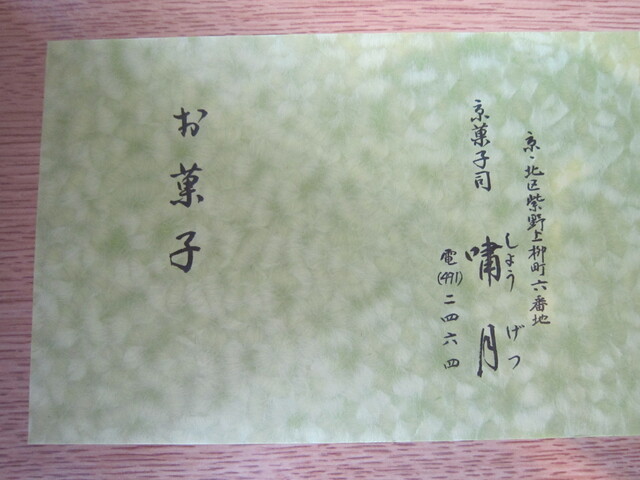 京・北区紫野上柳町六番地
京菓子司 嘯月
しょうげつ
電(491)二四六四
お菓子